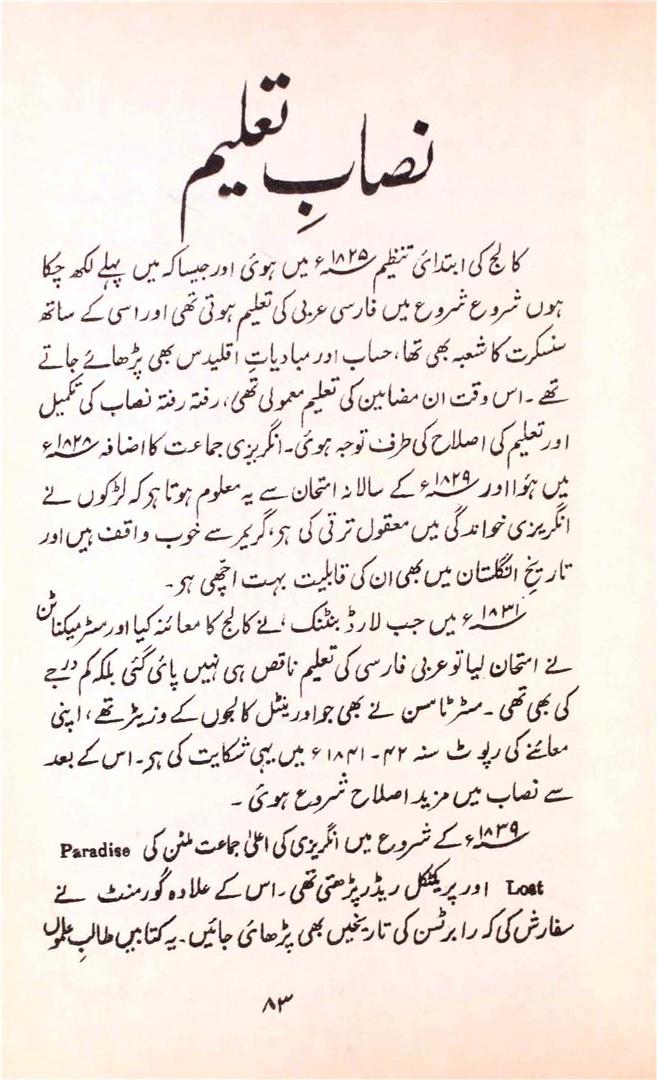 نصابِ تعلیم
کالج کی ابتدائی تنظیم ۱۸۲۵ء میں ہوئی اور جیسا کہ میں پہلے لکھ چکا
ہوں شروع شروع میں فارسی عربی کی تعلیم ہوتی تھی اور اسی کے ساتھ
سنسکرت کا شعبہ بھی تھا، حساب اور مبادیاتِ اقلیدس بھی پڑھائے جاتے
تھے۔ اس وقت ان مضامین کی تعلیم معمولی تھی، رفتہ رفتہ نصاب کی تکمیل
اور تعلیم کی اصلاح کی طرف توجہ ہوئی۔ انگریزی جماعت کا اضافہ ۱۸۲۸ء
میں ہؤا اور ۱۸۲۹ء کے سالانہ امتحان سے یہ معلوم ہوتا ہر کہ لڑکوں نے
انگریزی خواندگی میں معقول ترقی کی ہر، گریمر سے خوب واقف ہیں اور
تاریخِ انگلستان میں بھی ان کی قابلیت بہت اچھی ہر۔
۱۸۳۱ء میں جب لارڈ بنٹنک نے کالج کا معائنہ کیا اور مسٹر میکناٹن
نے امتحان لیا تو عربی فارسی کی تعلیم ناقص ہی نہیں پائی گئی بلکہ کم درجے
کی بھی تھی۔ مسٹر ٹامسن نے بھی جو اورینٹل کالجوں کے وزیٹر تھے، اپنی
معائنے کی رپوٹ سنہ ۴۲-۱۸۴۱ء میں یہی شکایت کی ہر۔ اس کے بعد
سے نصاب میں مزید اصلاح شروع ہوئی۔
۱۸۳۹ء کے شروع میں انگریزی کی اعلیٰ جماعت ملٹن کی Paradise
Lost اور پریکٹکل ریڈر پڑھتی تھی۔ اس کے علاوہ گورمنٹ نے
سفارش کی کہ رابرٹسن کی تاریخیں بھی پڑھائی جائیں۔ یہ کتابیں طالبِ علموں
۸۳